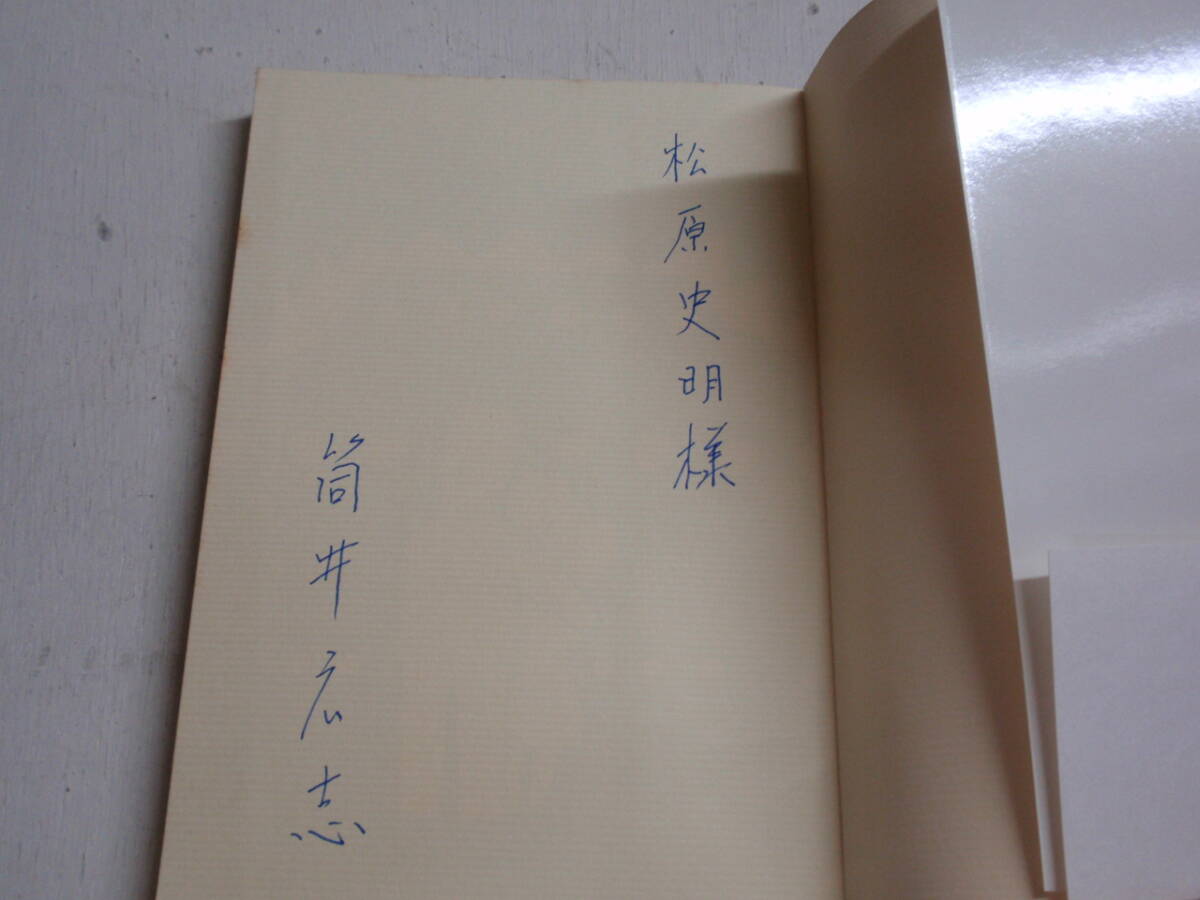 松原史明様
筒井広志